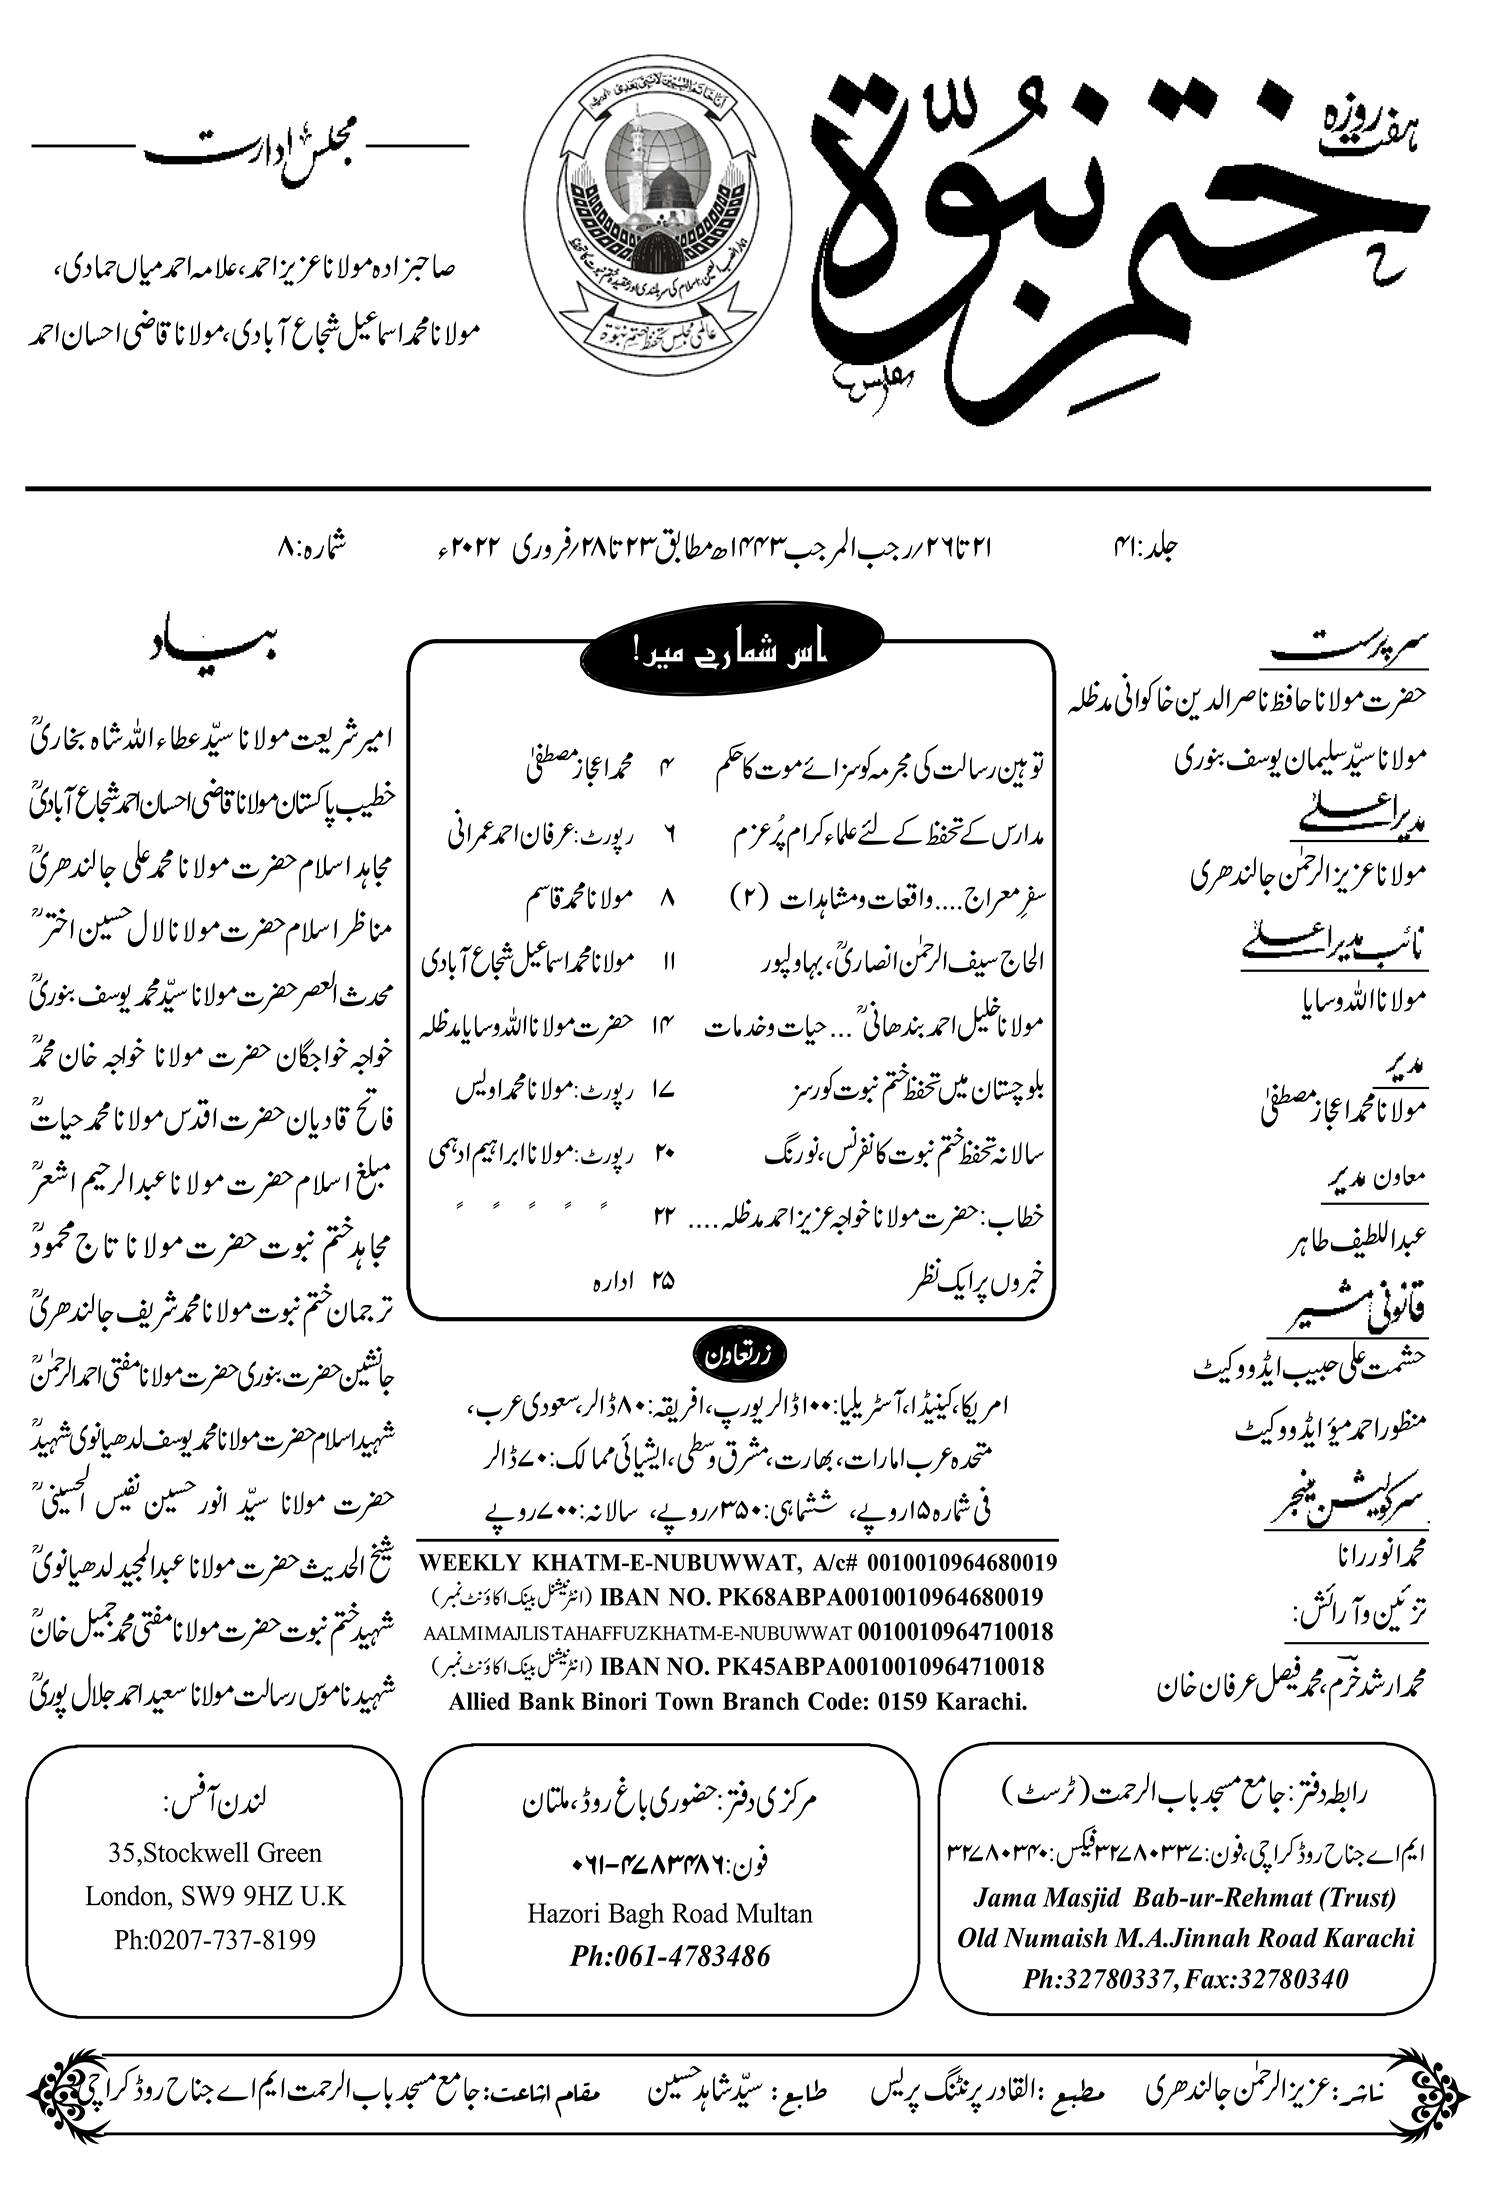 ہفت روزہ
ختم نبوّۃ
مجلس ادارت
صاحبزادہ مولانا عزیز احمد، علامہ احمد میاں حمادی،
مولانا محمد اسماعیل شجاع آبادی، مولانا قاضی احسان احمد
عالمی مجلس تحفظ ختم نبوۃ
جلد: ۴۱
۲۱ تا ۲۶/رجب المرجب ۱۴۴۳ھ مطابق ۲۳ تا ۲۸/فروری ۲۰۲۲ء
شمارہ: ۸
سرپرست
حضرت مولانا حافظ ناصر الدین خاکوانی مدظلہ
مولانا سیّد سلیمان یوسف بنوری
مدیر اعلیٰ
مولانا عزیز الرحمٰن جالندھری
نائب مدیر اعلیٰ
مولانا اللہ وسایا
مدیر
مولانا محمد اعجاز مصطفیٰ
معاون مدیر
عبداللطیف طاہر
قانونی مشیر
حشمت علی حبیب ایڈووکیٹ
منظور احمد میؤ ایڈووکیٹ
سرکولیشن منیجر
محمد انور رانا
تزئین و آرائش:
محمد ارشد خرم، محمد فیصل عرفان خان
اس شمارے میں!
توہین رسالت کی مجرمہ کو سزائے موت کا حکم ۴ محمد اعجاز مصطفیٰ
مدارس کے تحفظ کے لئے علماء کرام پُر عزم ۶ رپورٹ: عرفان احمد عمرانی
سفر معراج.... واقعات و مشاہدات (۲) ۸ مولانا محمد قاسم
الحاج سیف الرحمٰن انصاریؒ، بہاولپور ۱۱ مولانا محمد اسماعیل شجاع آبادی
مولانا خلیل احمد بندھانیؒ ... حیات و خدمات ۱۴ حضرت مولانا اللہ وسایا مدظلہ
بلوچستان میں تحفظ ختم نبوت کورسز ۱۷ رپورٹ: مولانا محمد اویس
سالانہ تحفظ ختم نبوت کانفرنس، نورنگ ۲۰ رپورٹ: مولانا ابراہیم ادہمی
خطاب: حضرت مولانا خواجہ عزیز احمد مدظلہ.... ۲۲ ״ ״ ״ ״ ״
خبروں پر ایک نظر ۲۵ ادارہ
زرتعاون
امریکا، کینیڈا، آسٹریلیا: ۱۰۰ ڈالر یورپ، افریقہ: ۸۰ ڈالر، سعودی عرب،
متحدہ عرب امارات، بھارت، مشرق وسطی، ایشیائی ممالک: ۷۰ ڈالر
فی شمارہ ۱۵ روپے، ششماہی: ۳۵۰/روپے، سالانہ: ۷۰۰ روپے
WEEKLY KHATM-E-NUBUWWAT, A/c# 0010010964680019
IBAN NO. PK68ABPA0010010964680019 (انٹرنیشنل بینک اکاؤنٹ نمبر)
AALMIMAJLISTAHAFFUZKHATM-E-NUBUWWAT 0010010964710018
IBAN NO. PK45ABPA0010010964710018 (انٹرنیشنل بینک اکاؤنٹ نمبر)
Allied Bank Binori Town Branch Code: 0159 Karachi.
بیاد
امیر شریعت مولانا سیّد عطاء اللہ شاہ بخاریؒ
خطیب پاکستان مولانا قاضی احسان احمد شجاع آبادیؒ
مجاہد اسلام حضرت مولانا محمد علی جالندھریؒ
مناظر اسلام حضرت مولانا لال حسین اخترؒ
محدث العصر حضرت مولانا سیّد محمد یوسف بنوریؒ
خواجہ خواجگان حضرت مولانا خواجہ خان محمدؒ
فاتح قادیان حضرت اقدس مولانا محمد حیاتؒ
مبلغ اسلام حضرت مولانا عبدالرحیم اشعرؒ
مجاہد ختم نبوت حضرت مولانا تاج محمودؒ
ترجمان ختم نبوت مولانا محمد شریف جالندھریؒ
جانشین حضرت بنوری حضرت مولانا مفتی احمد الرحمٰنؒ
شہید اسلام حضرت مولانا محمد یوسف لدھیانوی شہیدؒ
حضرت مولانا سیّد انور حسین نفیس الحسینیؒ
شیخ الحدیث حضرت مولانا عبدالمجید لدھیانویؒ
شہید ختم نبوت حضرت مولانا مفتی محمد جمیل خانؒ
شہید ناموس رسالت مولانا سعید احمد جلال پوریؒ
رابطہ دفتر: جامع مسجد باب الرحمت (ٹرسٹ)
ایم اے جناح روڈ کراچی، فون: ۳۲۷۸۰۳۳۷ فیکس: ۳۲۷۸۰۳۴۰
Jama Masjid Bab-ur-Rehmat (Trust)
Old Numaish M.A.Jinnah Road Karachi
Ph:32780337, Fax:32780340
مرکزی دفتر: حضوری باغ روڈ، ملتان
فون: ۰۶۱-۴۷۸۳۴۸۶
Hazori Bagh Road Multan
Ph:061-4783486
لندن آفس:
35,Stockwell Green
London, SW9 9HZ U.K
Ph:0207-737-8199
ناشر: عزیز الرحمٰن جالندھری مطبع: القادر پرنٹنگ پریس طابع: سیّد شاہد حسین مقام اشاعت: جامع مسجد باب الرحمت ایم اے جناح روڈ کراچی